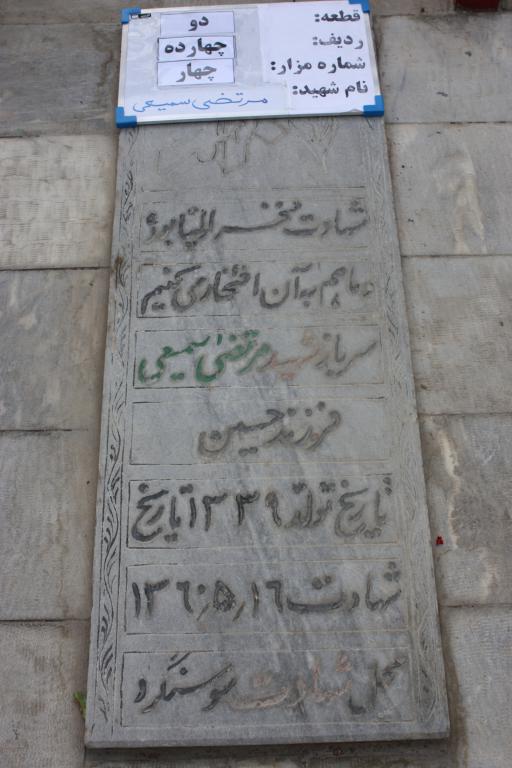 قطعه: دو
ردیف: چهارده
شماره مزار: چهار
نام شهید: مرتضی سمیعی
شهادت مفخر انبیا بود
و ما هم به آن افتخار می‌کنیم
سرباز شهید مرتضی سمیعی
فرزند حسین
تاریخ تولد ۱۳۳۹ تاریخ
شهادت ۱۳۶۰٫۵٫۱۶
محل شهادت سوسنگرد